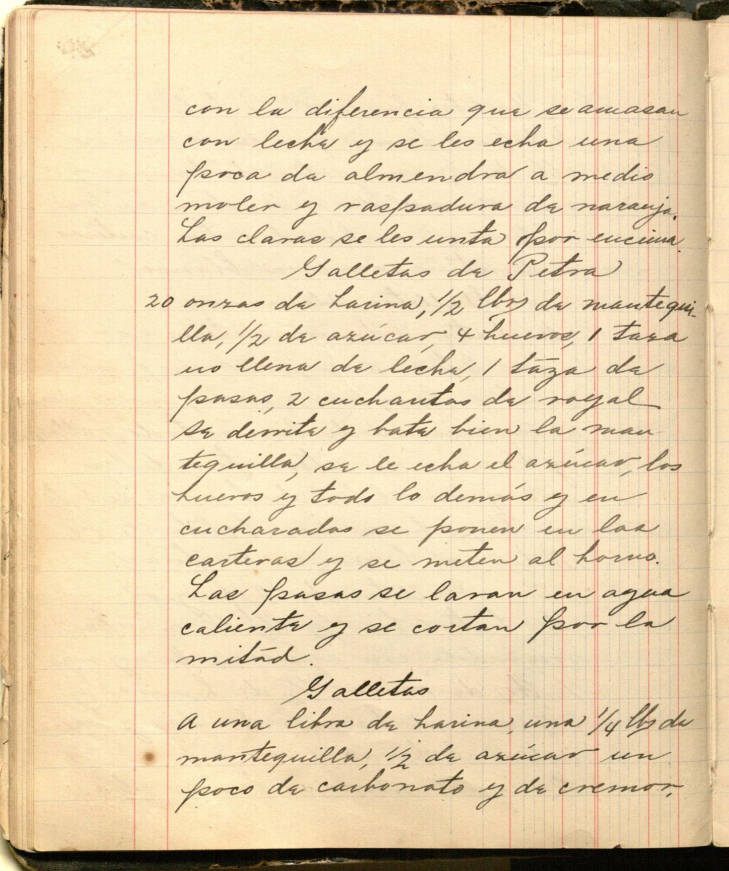 con la diferencia que se amasan
con leche y se les echa una
poca de almendra a medio
moler y raspadura de naranja.
Las claras se les unta por encima.
Galletas de Petra
20 onzas de harina, 1/2 lbs de mantequi-
lla, 1/2 de azúcar, 4 huevos, 1 taza
no llena de leche, 1 taza de
pasas, 2 cucharitas de royal
se derrite y bate bien la man
tequilla, se le echa el azúcar, los
huevos y todo lo demás y en
cucharadas se ponen en las
carteras y se meten al horno.
Las pasas se lavan en agua
caliente y se cortan por la
mitad.
Galletas
A una libra de harina, una 1/4 lbs de
mantequilla, 1/2 de azúcar un
poco de carbonato y de cremor,